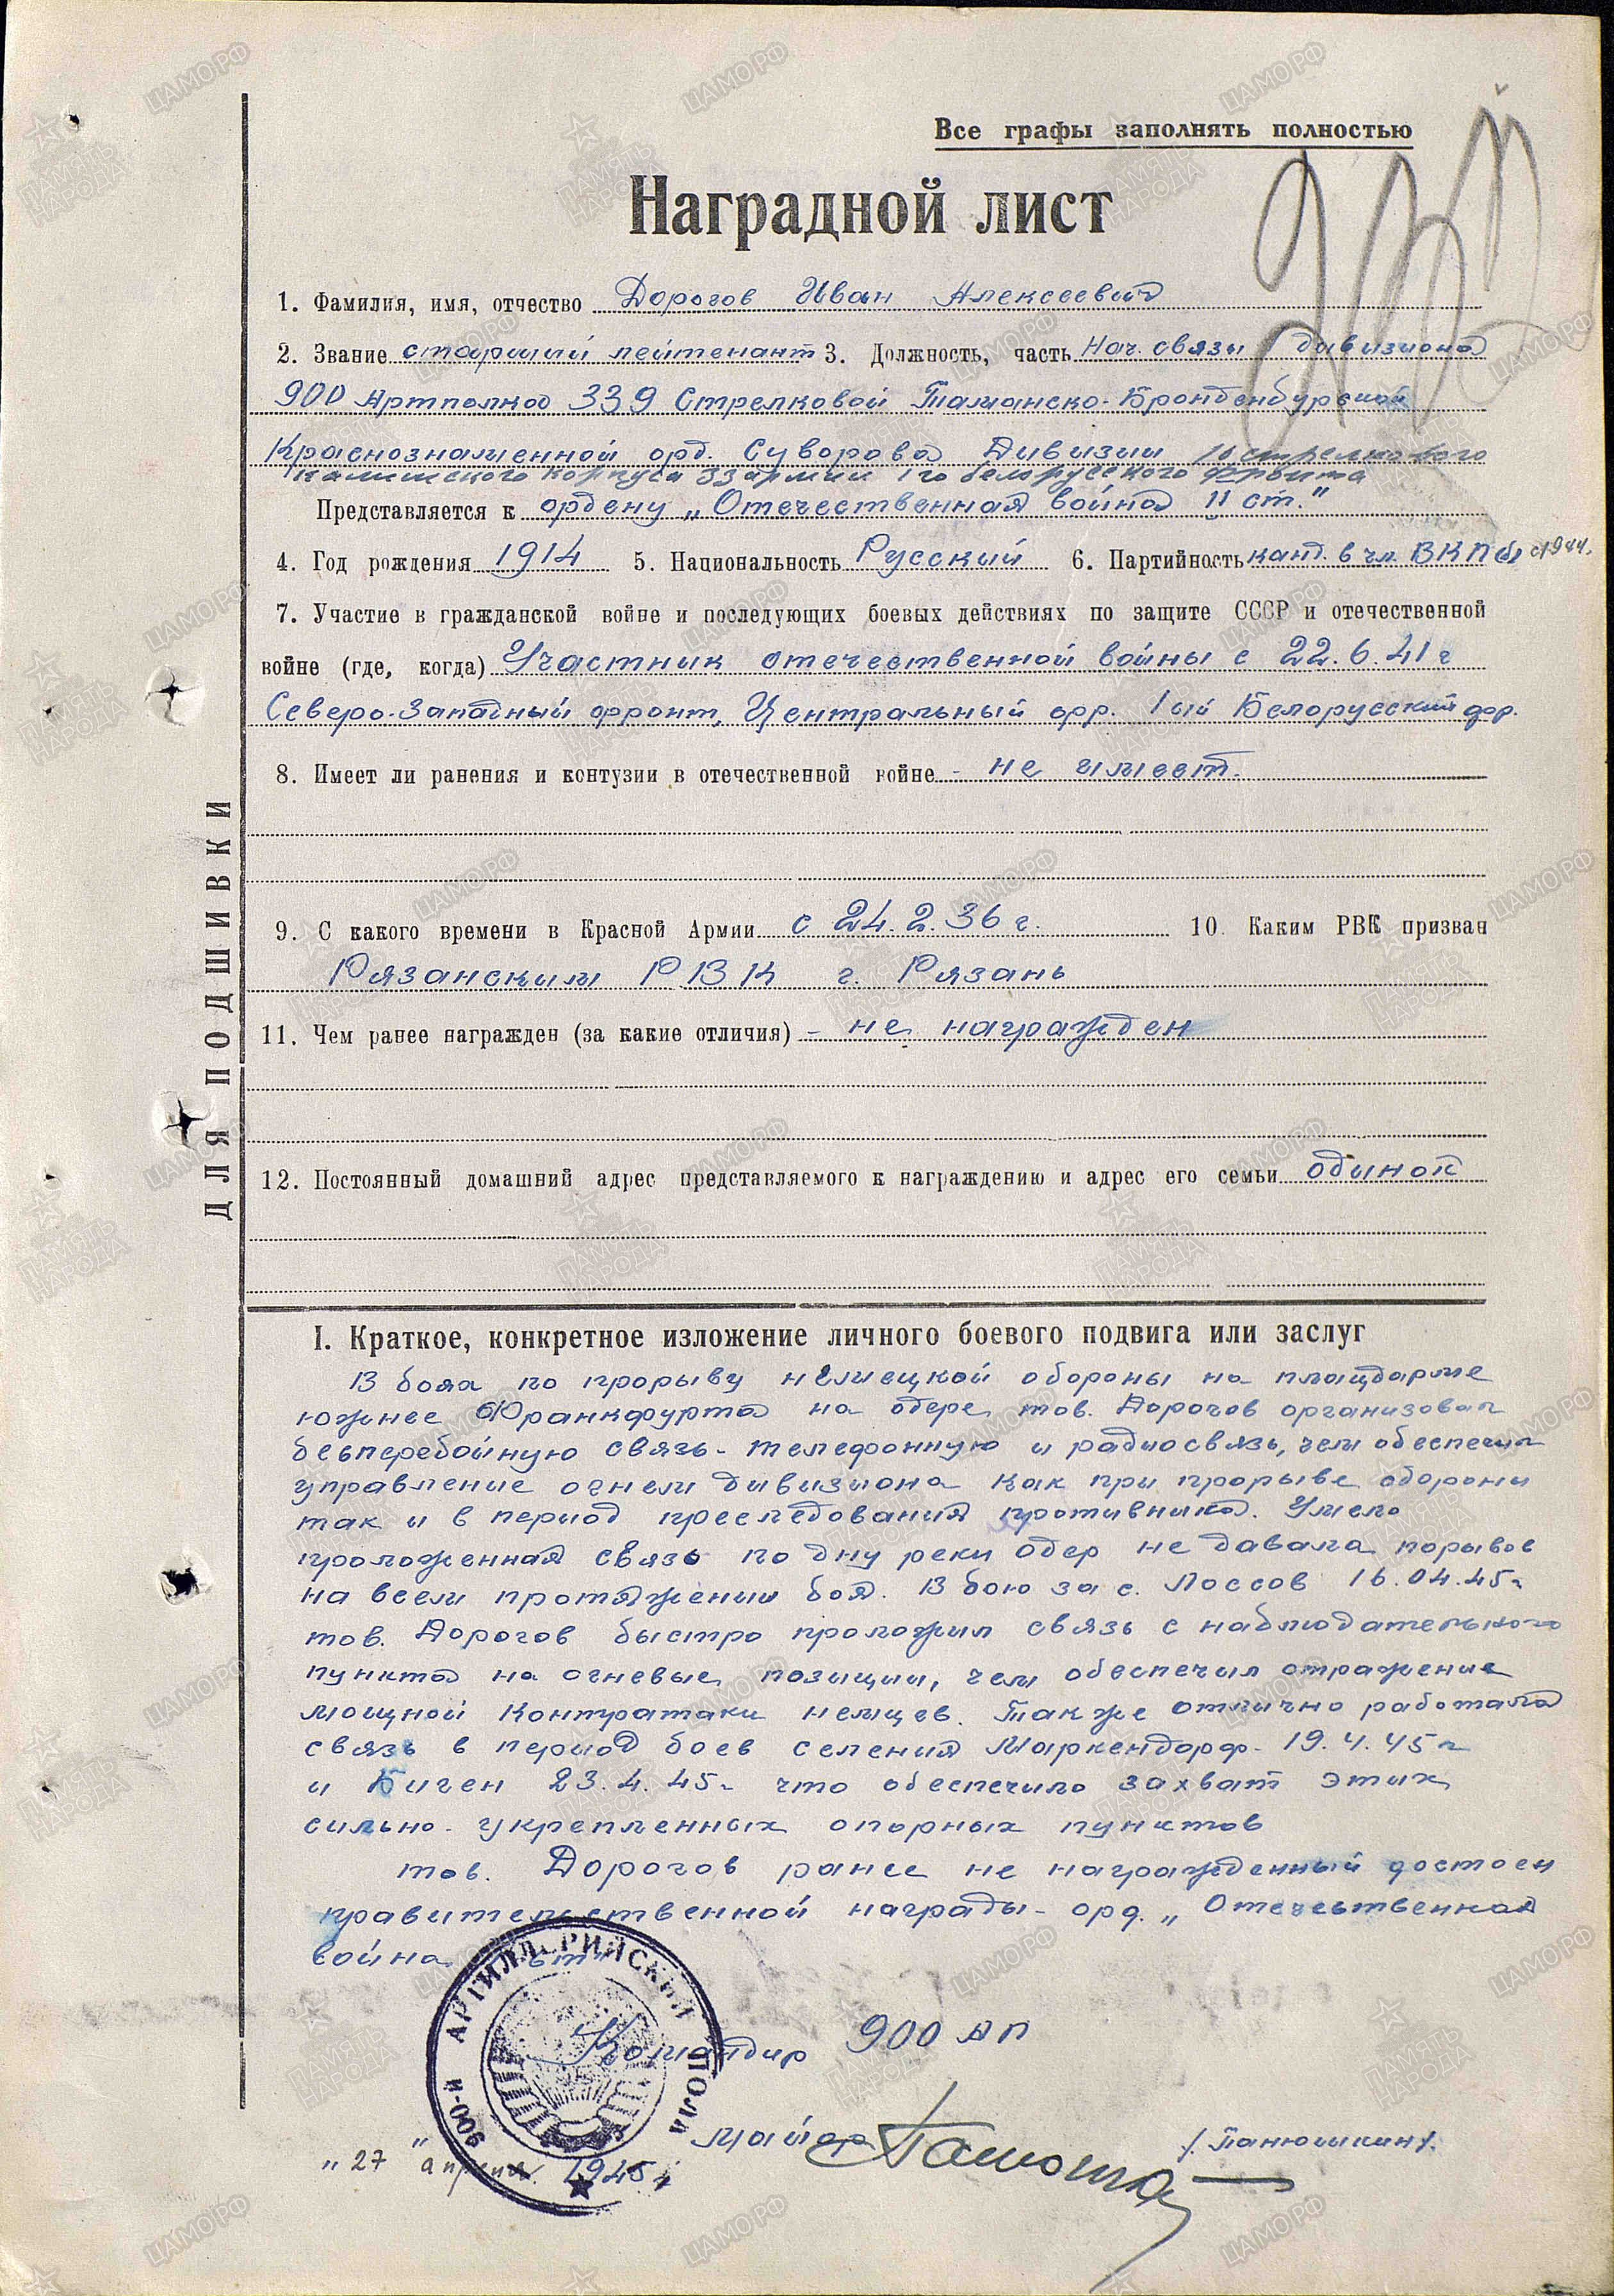 Все графы заполнять полностью
Наградной лист
1. Фамилия, имя, отчество Дорогов Иван Алексеевич
2. Звание старший лейтенант 3. Должность, часть Нач. связи дивизиона
900 Артполка 339 Стрелковой Таманско-Бранденбургской
Краснознаменной орд. Суворова Дивизии 16 стрелкового
Калишского корпуса 33 армии 1го белорусского фронта
Представляется к ордену „Отечественная война II ст."
4. Год рождения 1914 5. Национальность Русский 6. Партийность канд. в чл. ВКП(б) с 1944.
7. Участие в гражданской войне и последующих боевых действиях по защите СССР и отечественной
войне (где, когда) Участник отечественной войны с 22.6.41 г
Северо-Западный фронт, Центральный фр. 1ый Белорусский фр.
8. Имеет ли ранения и контузии в отечественной войне - не имеет.
9. С какого времени в Красной Армии с 24.2.36 г. 10. Каким РВК призван
Рязанским РВК г. Рязань
11. Чем ранее награжден (за какие отличия) - не награжден
12. Постоянный домашний адрес представляемого к награждению и адрес его семьи одинок
ДЛЯ ПОДШИВКИ
I. Краткое, конкретное изложение личного боевого подвига или заслуг
В боях по прорыву немецкой обороны на плацдарме
южнее Франкфурта на Одере, тов. Дорогов организовал
бесперебойную связь - телефонную и радиосвязь, чем обеспечил
управление огнем дивизиона как при прорыве обороны
так и в период преследования противника. Умело
проложенная связь по дну реки Одер не давала порывов
на всем протяжении боя. В бою за с. Лоссов 16.04.45г
тов. Дорогов быстро проложил связь с наблюдательного
пункта на огневые позиции, чем обеспечил отражение
мощной контратаки немцев. Также отлично работала
связь в период боев селения Маркендорф - 19.4.45г
и Биген 23.4.45г что обеспечило захват этих
сильно-укрепленных опорных пунктов
тов. Дорогов ранее не награжденный достоен
правительственной награды - орд. „Отечественная
война ст"
Командир 900 АП
майор /Панюшкин/.
„27" апреля 1945 г
900-й АРТИЛЛЕРИЙСКИЙ ПОЛК
ЦАМО.РФ
ПАМЯТЬ НАРОДА